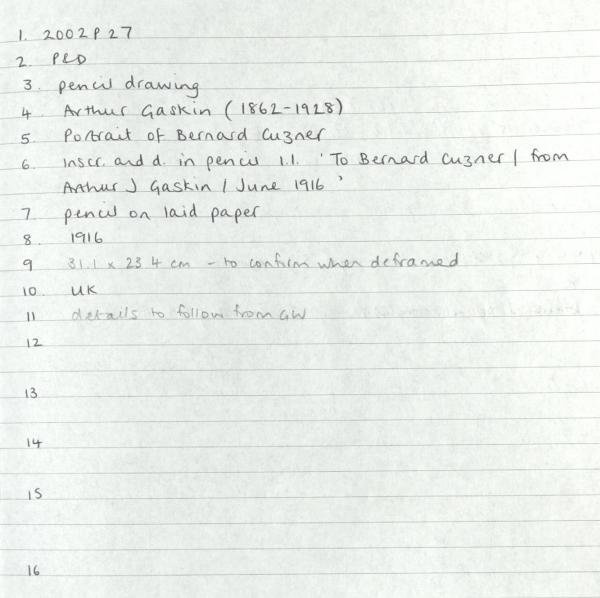 1. 2002P27
2. P&D
3. pencil drawing
4. Arthur Gaskin (1862-1928)
5. Portrait of Bernard Cuzner
6. Inscr. and d. in pencil l.l. 'To Bernard Cuzner / from
Arthur J Gaskin / June 1916'
7. pencil on laid paper
8. 1916
9 31.1 x 23.4 cm - to confirm when deframed
10. UK
11 details to follow from GW
12
13
14
15
16